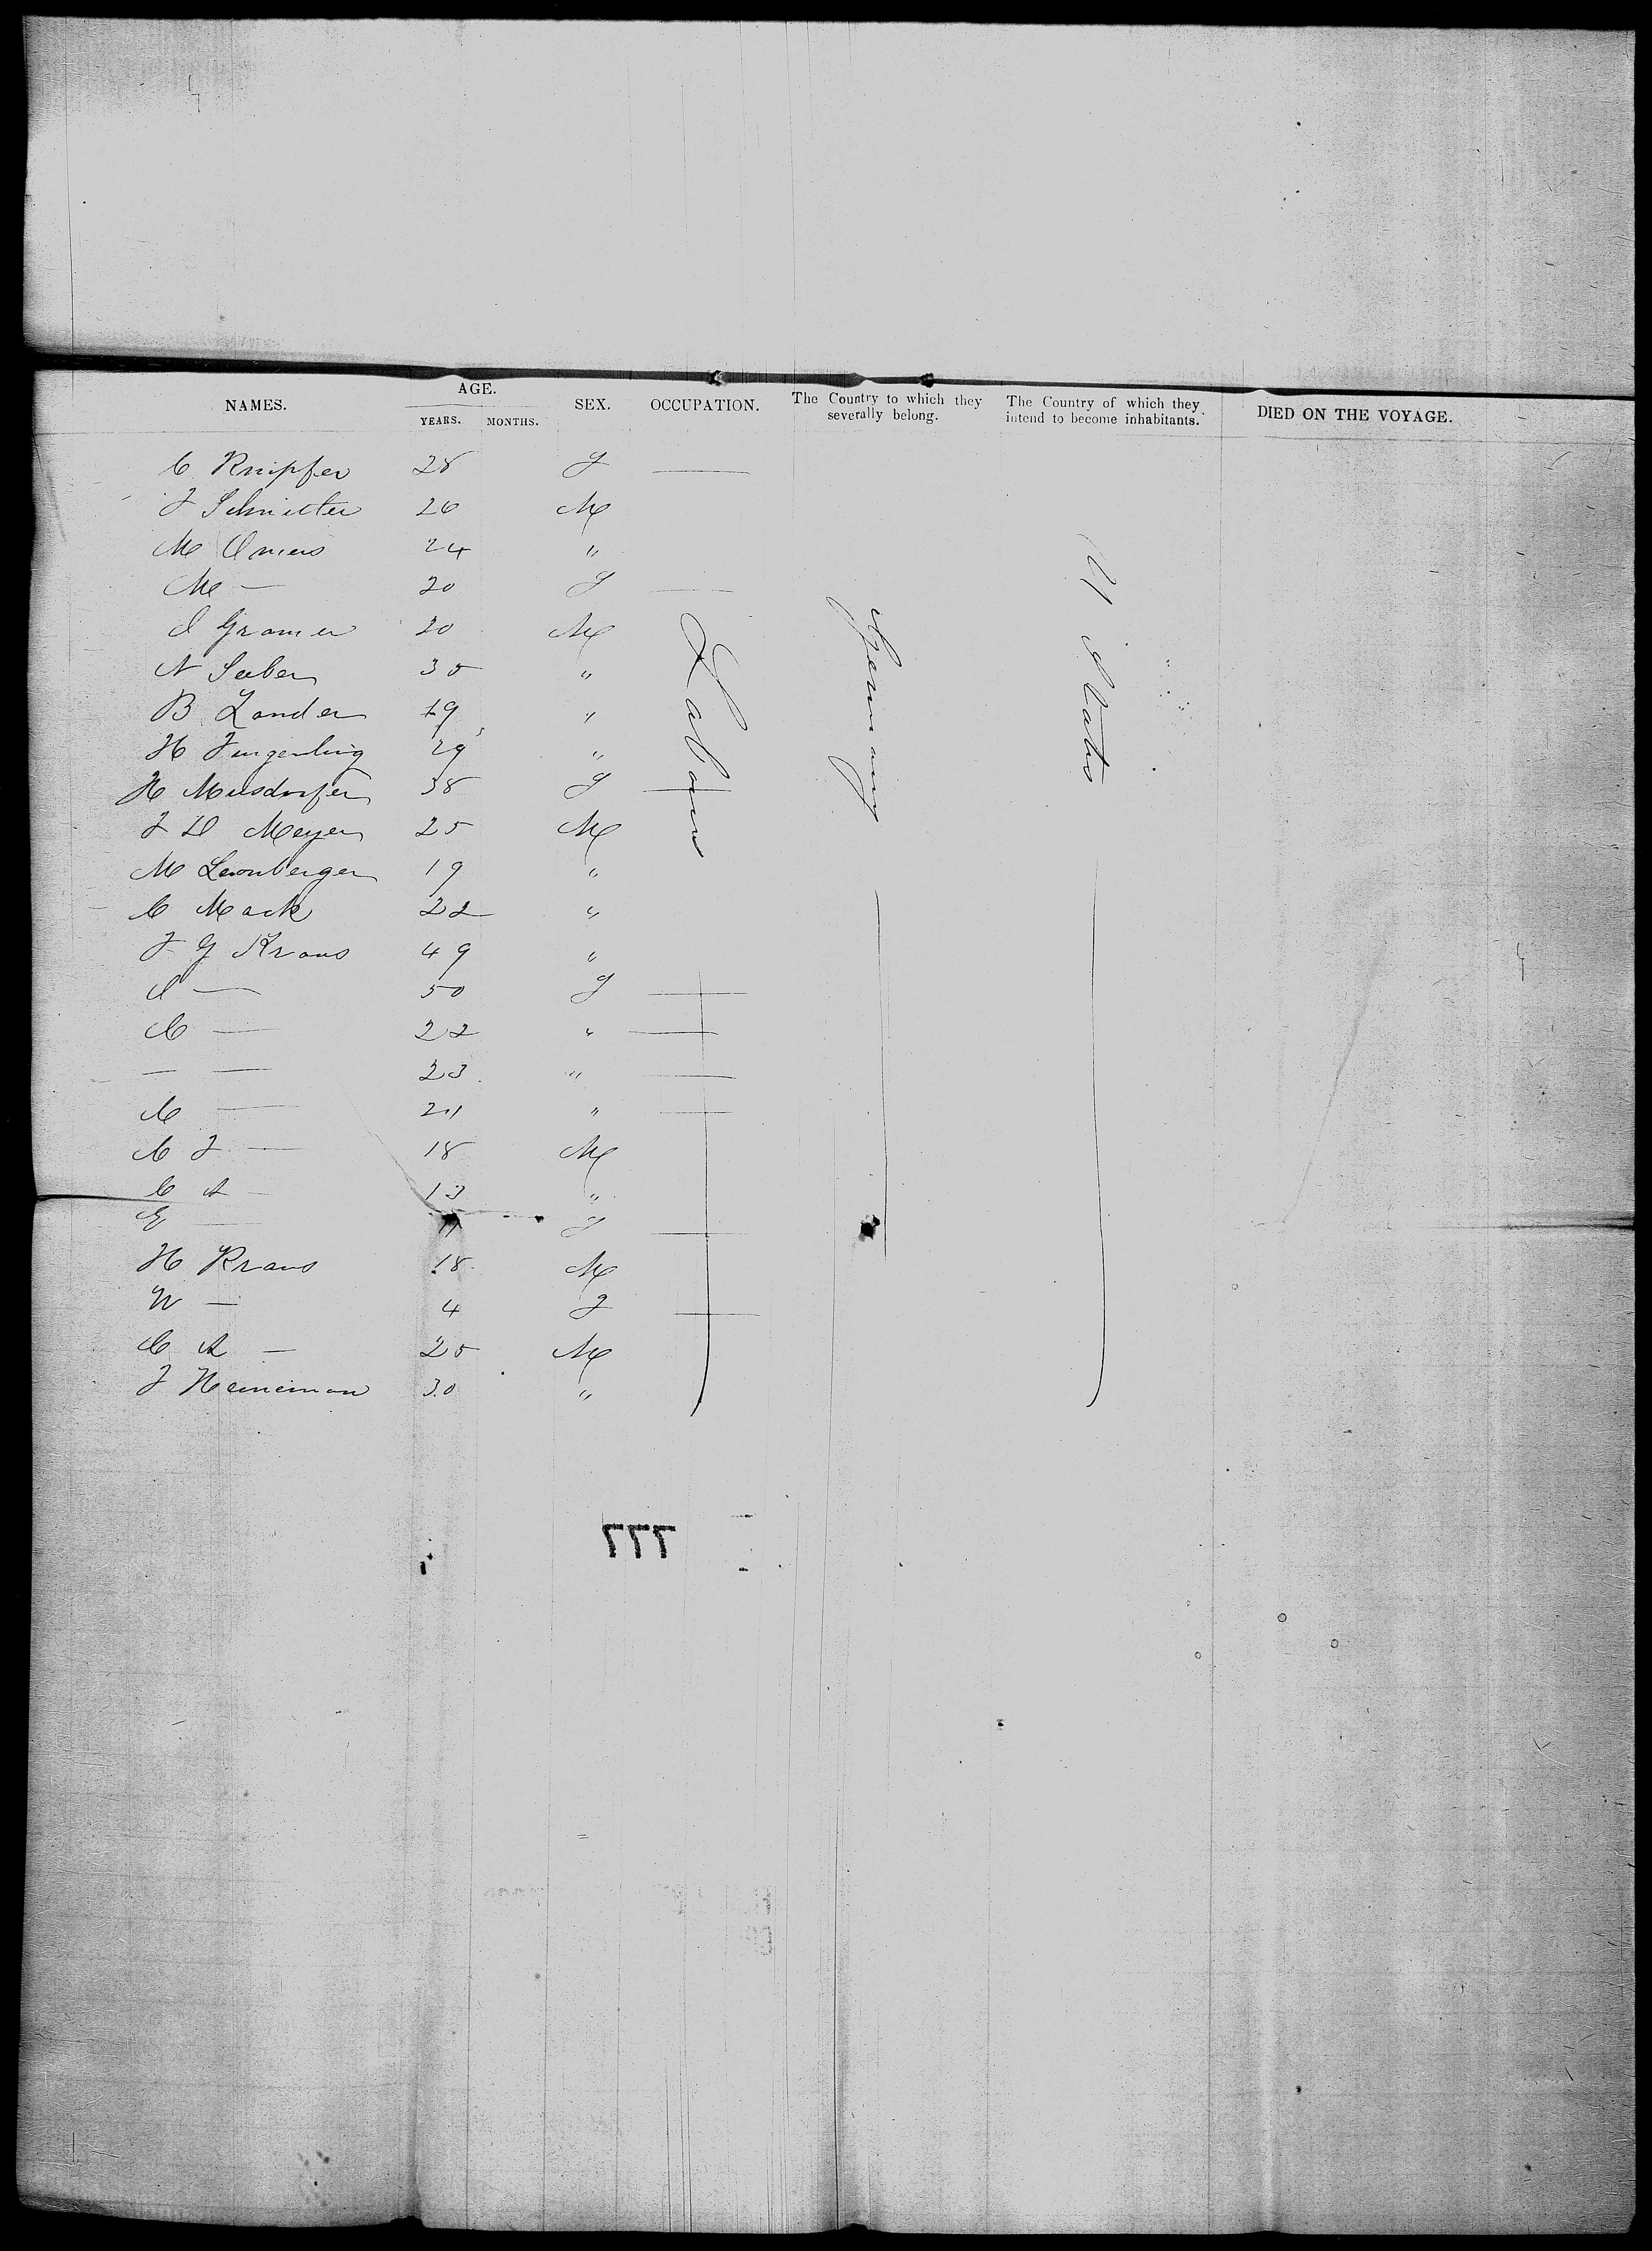 NAMES. AGE. YEARS. MONTHS. SEX. OCCUPATION. The Country to which they severally belong. The Country of which they intend to become inhabitants. DIED ON THE VOYAGE.
C Knipfer 28 F —
J Schnitter 26 M
M 24 "
M — 20 F —
J Gramer 20 M
N Seeber 30 "
B Zander 19 "
H 29 "
H Meusdorfer 38 F —
J D Meyer 25 M
M Leonberger 19 "
C Mack 22 "
J G Kraus 49 "
— 50 F —
C — 22 " —
— — 23 " —
C — 21 " —
C J — 18 M
C A — 13 "
— 11 F —
H Kraus 18 M
W — 4 F —
C A — 25 M
J Heineman 30 "
Labour
Germany
U States
777